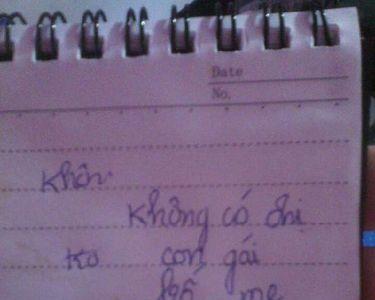 Date
No.
Khôn
Không có chị
ko con gái
bố mẹ